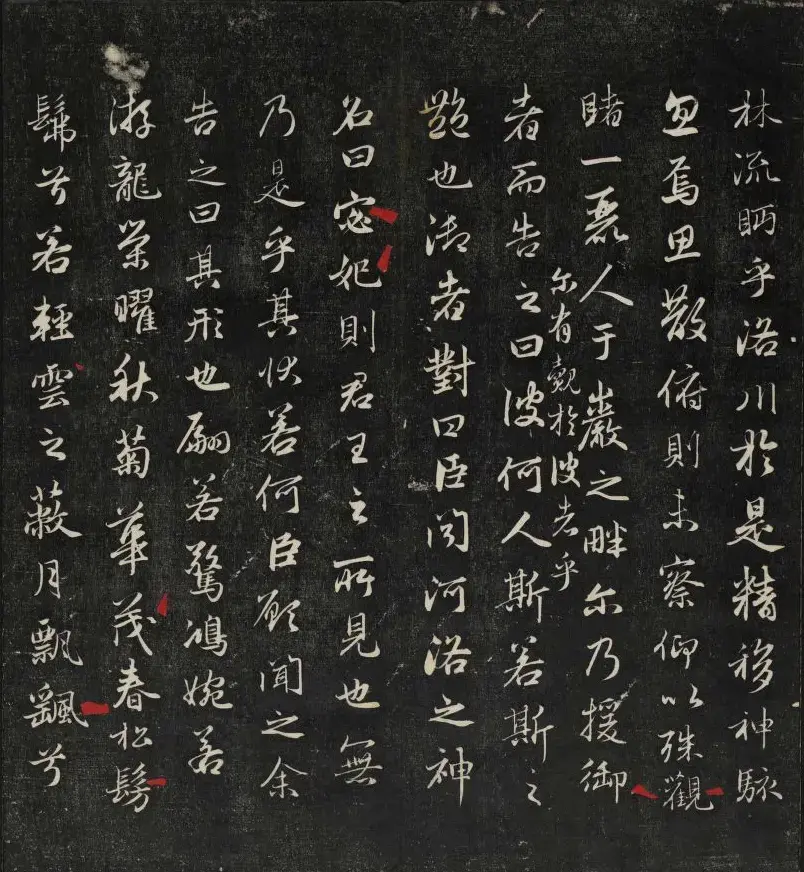 林流眄乎洛川於是精移神駭
忽焉思散俯則未察仰以殊觀
睹一麗人于巖之畔尔乃援御
者而告之曰彼何人斯若斯之
尔有覿於彼者乎
豔也御者對曰臣聞河洛之神
名曰宓妃則君王之所見也無
乃是乎其狀若何臣願聞之余
告之曰其形也翩若驚鴻婉若
游龍榮曜秋菊華茂春松髣
髴兮若輕雲之蔽月飄颻兮